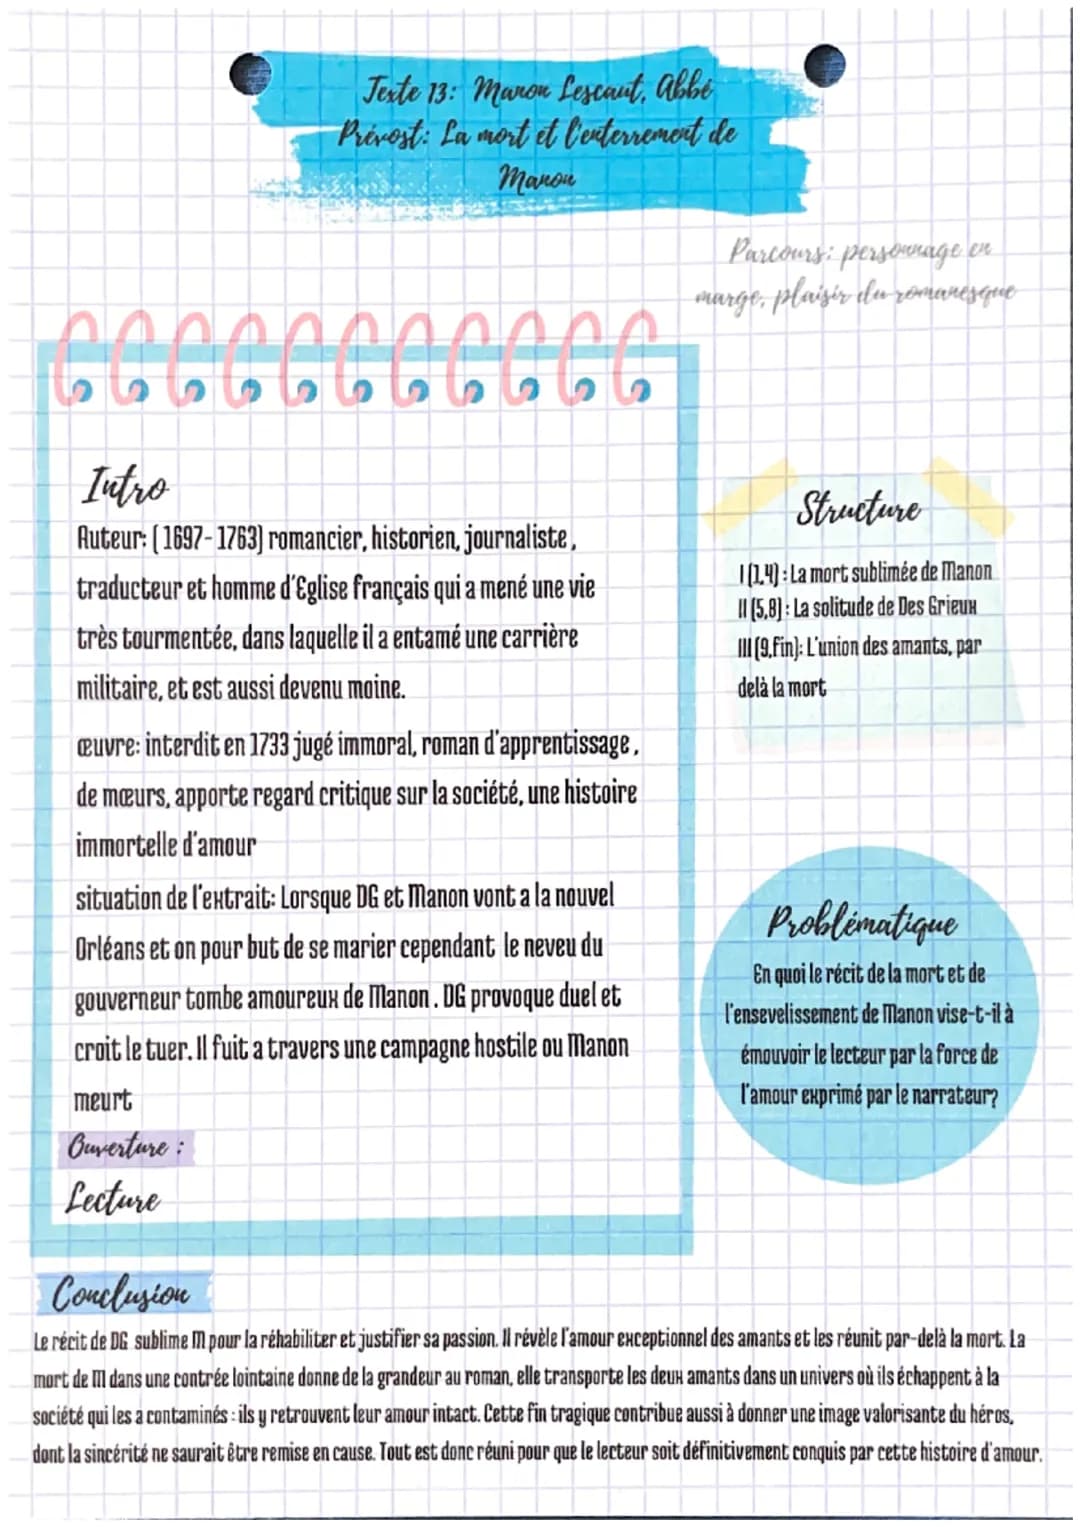 Texte 13: Manon Lescaut, Abbé
Prévost: La mort et l'enterrement de
Manon
Parcours: personnage en
marge, plaisir du romanesque
Intro
Auteur: ( 1697- 1763) romancier, historien, journaliste,
traducteur et homme d'Eglise français qui a mené une vie
très tourmentée, dans laquelle il a entamé une carrière
militaire, et est aussi devenu moine.
œuvre: interdit en 1733 jugé immoral, roman d'apprentissage,
de mœurs, apporte regard critique sur la société, une histoire
immortelle d'amour
situation de l'extrait: Lorsque DG et Manon vont a la nouvel
Orléans et on pour but de se marier cependant le neveu du
gouverneur tombe amoureux de Manon. DG provoque duel et
croit le tuer. Il fuit a travers une campagne hostile ou Manon
meurt
Ouverture :
Lecture
Structure
I (1,4) : La mort sublimée de Manon
II (5,8) : La solitude de Des Grieux
III (9,fin): L'union des amants, par
delà la mort
Problématique
En quoi le récit de la mort et de
l'ensevelissement de Manon vise-t-il à
émouvoir le lecteur par la force de
l'amour exprimé par le narrateur?
Conclusion
Le récit de DG sublime M pour la réhabiliter et justifier sa passion. Il révèle l'amour exceptionnel des amants et les réunit par-delà la mort. La
mort de M dans une contrée lointaine donne de la grandeur au roman, elle transporte les deux amants dans un univers où ils échappent à la
société qui les a contaminés : ils y retrouvent leur amour intact. Cette fin tragique contribue aussi à donner une image valorisante du héros,
dont la sincérité ne saurait être remise en cause. Tout est donc réuni pour que le lecteur soit définitivement conquis par cette histoire d'amour.